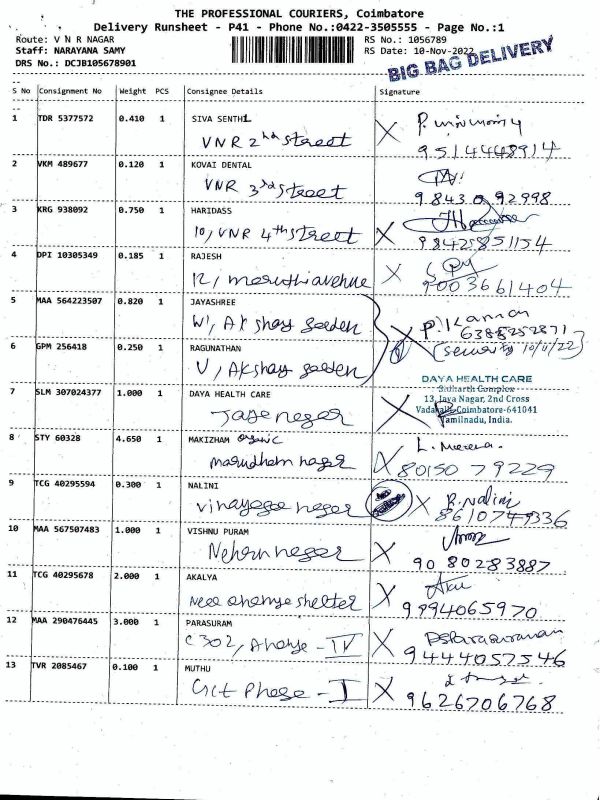 THE PROFESSIONAL COURIERS, Coimbatore
Delivery Runsheet - P41 - Phone No.:0422-3505555 - Page No.:1
Route: V N R NAGAR
RS No.: 1056789
Staff: NARAYANA SAMY
RS Date: 10-Nov-2022
DRS No.: DCJB105678901
BIG BAG DELIVERY
S No Consignment No Weight PCS Consignee Details Signature
1 TDR 5377572 0.410 1 SIVA SENTHIL
VNR 2nd street
9514448914
2 VKM 489677 0.120 1 KOVAI DENTAL
VNR 3rd street
98430 92998
3 KRG 938092 0.750 1 HARIDASS
10, VNR 4th street
98425851154
4 DPI 10305349 0.185 1 RAJESH
12, maruthi avenue
9003661404
5 MAA 564223507 0.820 1 JAYASHREE
W1, Akshay garden
P. Kannan
6385252871
6 GPM 256418 0.250 1 RAGUNATHAN
V, Akshay garden
(security 10/11/22)
7 SLM 307024377 1.000 1 DAYA HEALTH CARE
Jaya nagar
DAYA HEALTH CARE
Sidharth Complex
13, Jaya Nagar, 2nd Cross
Vadavalli, Coimbatore-641041
Tamilnadu, India.
8 STY 60328 4.650 1 MAKIZHAM organic
marudham nagar
L. Meena
80150 79229
9 TCG 40295594 0.300 1 NALINI
vinayaga nagar
R. Nalini
8610749336
10 MAA 567507483 1.000 1 VISHNU PURAM
Nehru nagar
90 80283887
11 TCG 40295678 2.000 1 AKALYA
Near ananya shelter
Aku
9994065970
12 MAA 290476445 3.000 1 PARASURAM
C302, Ananya - IV
PSParasuraman
9444057546
13 TVR 2085467 0.100 1 MUTHU
Gct Phase - I
9626706768